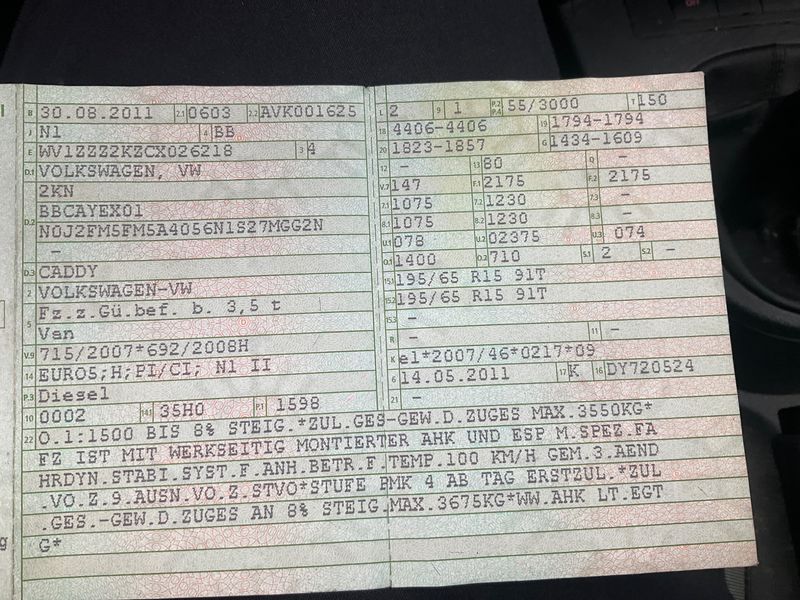 B 30.08.2011 2.1 0603 2.2 AVK001625
J N1 4 BB
E WV1ZZZ2KZCX026218 3 4
D.1 VOLKSWAGEN, VW
2KN
D.2 BBCAYEX01
N0J2FM5FM5A4056N1S27MGG2N
-
D.3 CADDY
2 VOLKSWAGEN-VW
5 Fz.z.Gü.bef. b. 3,5 t
Van
V.9 715/2007*692/2008H
14 EURO5;H;PI/CI; N1 II
P.3 Diesel
10 0002 14.1 35H0 P.1 1598
L 2 9 1 P.2 P.4 55/3000 T 150
18 4406-4406 19 1794-1794
20 1823-1857 G 1434-1609
12 - 13 80 Q -
V.7 147 F.1 2175 F.2 2175
7.1 1075 7.2 1230 7.3 -
8.1 1075 8.2 1230 8.3 -
U.1 078 U.2 02375 U.3 074
O.1 1400 O.2 710 S.1 2 S.2 -
15.1 195/65 R15 91T
15.2 195/65 R15 91T
15.3 -
R - 11 -
K e1*2007/46*0217*09
6 14.05.2011 17 K 16 DY720524
21 -
22 O.1:1500 BIS 8% STEIG.*ZUL.GES-GEW.D.ZUGES MAX.3550KG*
FZ IST MIT WERKSEITIG MONTIERTER AHK UND ESP M.SPEZ.FA
HRDYN.STABI.SYST.F.ANH.BETR.F.TEMP.100 KM/H GEM.3.AEND
.VO.Z.9.AUSN.VO.Z.STVO*STUFE PMK 4 AB TAG ERSTZUL.*ZUL
.GES.-GEW.D.ZUGES AN 8% STEIG.MAX.3675KG*WW.AHK LT.EGT
G*